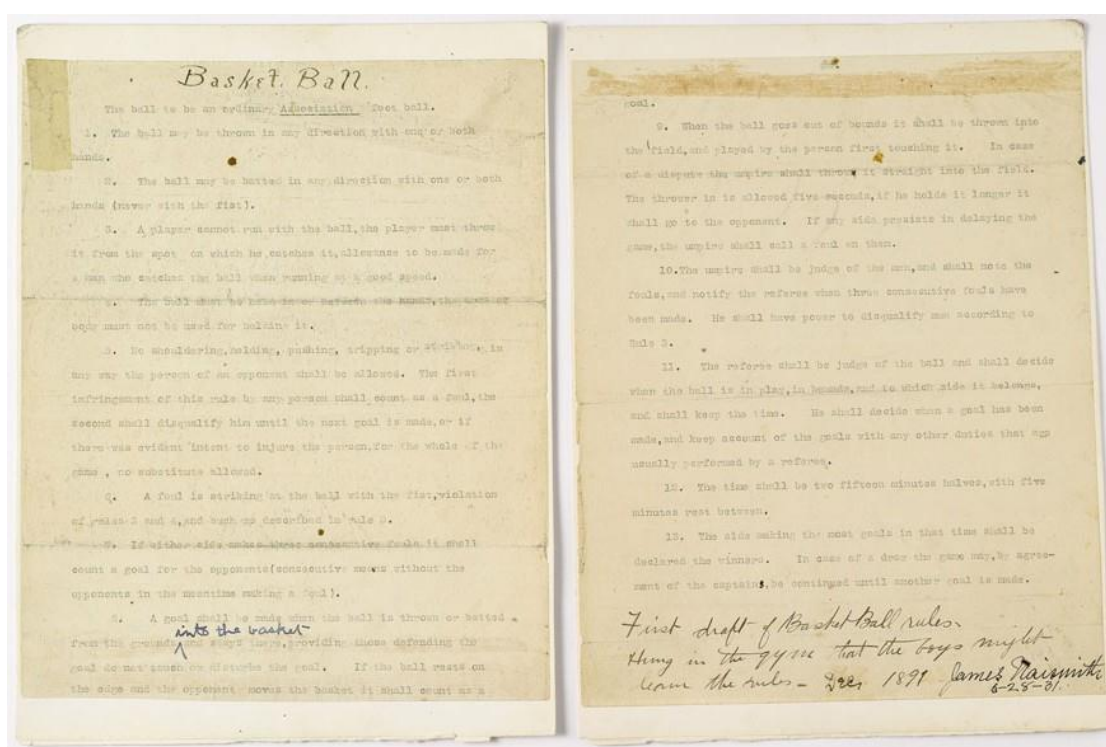 Basket Ball.
The ball to be an ordinary Association foot ball.
1. The ball may be thrown in any direction with one or both
hands.
2. The ball may be batted in any direction with one or both
hands (never with the fist).
3. A player cannot run with the ball, the player must throw
it from the spot on which he catches it, allowance to be made for
a man who catches the ball when running at a good speed.
4. The ball must be held in or between the hands, the arms or
body must not be used for holding it.
5. No shouldering, holding, pushing, tripping or striking, in
any way the person of an opponent shall be allowed. The first
infringement of this rule by any person shall count as a foul, the
second shall disqualify him until the next goal is made, or if
there was evident intent to injure the person, for the whole of the
game, no substitute allowed.
A foul is striking at the ball with the fist, violation
of rules 3 and 4, and such as described in rule 5.
7. If either side makes three consecutive fouls it shall
count a goal for the opponents (consecutive means without the
opponents in the meantime making a foul).
8. A goal shall be made when the ball is thrown or batted
into the basket
from the grounds and stays there, providing those defending the
goal do not touch or disturb the goal. If the ball rests on
the edge and the opponent moves the basket it shall count as a
goal.
9. When the ball goes out of bounds it shall be thrown into
the field, and played by the person first touching it. In case
of a dispute the umpire shall throw it straight into the field.
The thrower in is allowed five seconds, if he holds it longer it
shall go to the opponent. If any side persists in delaying the
game, the umpire shall call a foul on them.
10. The umpire shall be judge of the men, and shall note the
fouls, and notify the referee when three consecutive fouls have
been made. He shall have power to disqualify men according to
Rule 5.
11. The referee shall be judge of the ball and shall decide
when the ball is in play, in bounds, and to which side it belongs,
and shall keep the time. He shall decide when a goal has been
made, and keep account of the goals with any other duties that are
usually performed by a referee.
12. The time shall be two fifteen minutes halves, with five
minutes rest between.
13. The side making the most goals in that time shall be
declared the winners. In case of a draw the game may, by agree-
ment of the captains, be continued until another goal is made.
First draft of Basket Ball rules.
Hung in the gym that the boys might
learn the rules - Dec 1891 James Naismith
6-28-31.